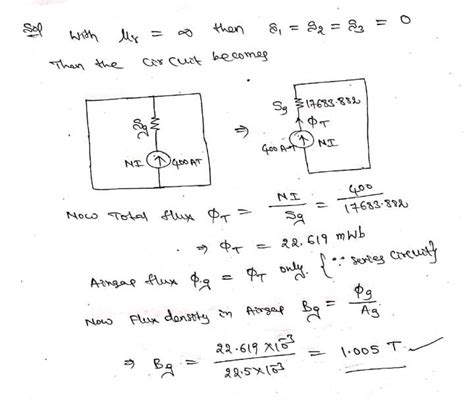 Sol With μr = ∞ then S1 = S2 = S3 = 0
Then the circuit becomes
Sg
NI
400AT
⇒
Sg
17683.882
ΦT
400AT
NI
Now Total flux ΦT = NI / Sg = 400 / 17683.882
⇒ ΦT = 22.619 mWb
Airgap flux Φg = ΦT only. {∵ series circuit}
Now Flux density in Airgap Bg = Φg / Ag
⇒ Bg = 22.619 X10^-3 / 22.5×10^-3 = 1.005 T